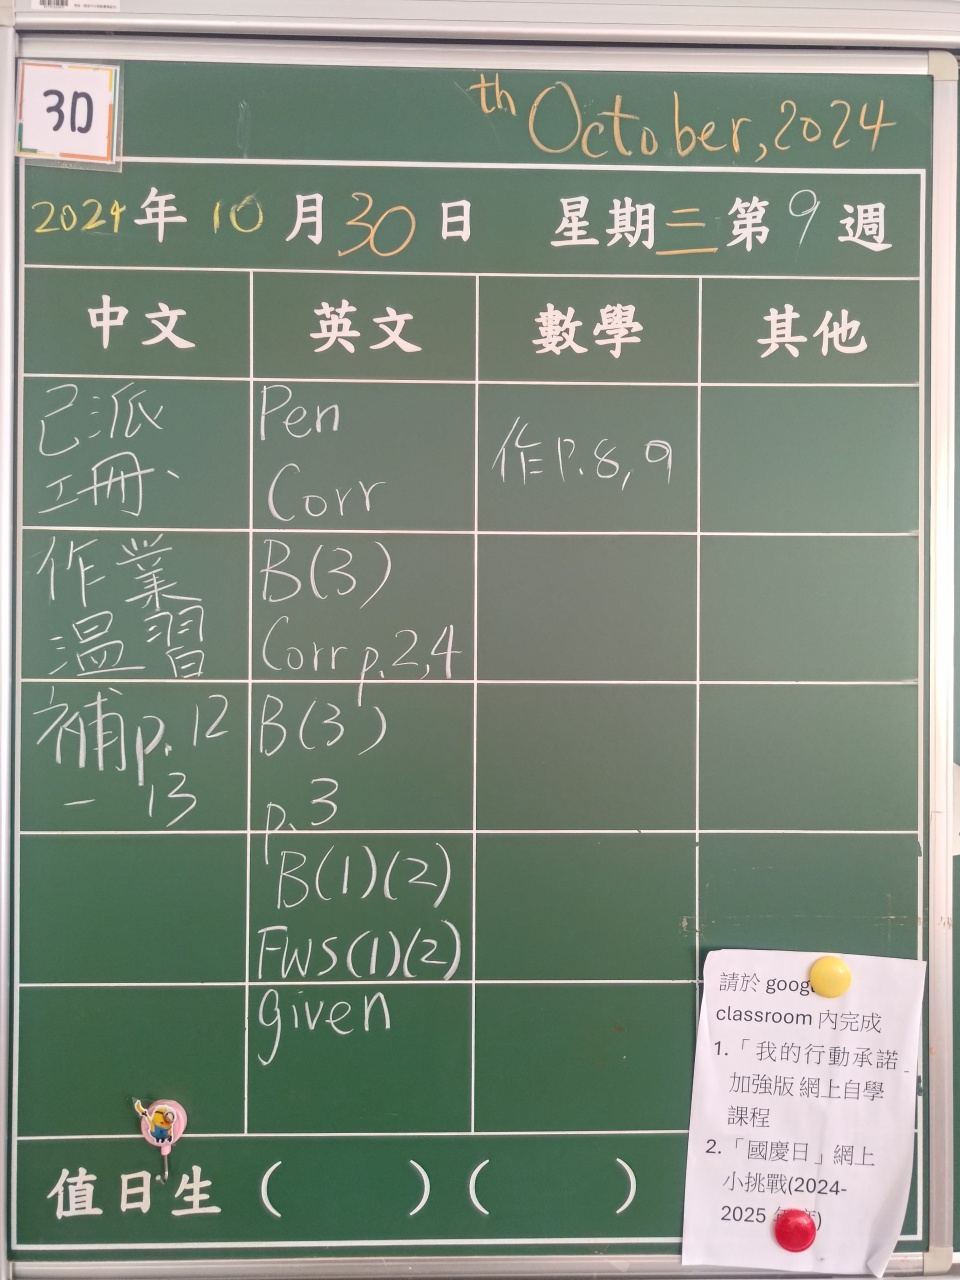 30
th October, 2024
2024年10月30日 星期三第9週
中文 英文 數學 其他
已派
工冊、
作業
溫習
補p.12
－13
Pen
Corr
B(3)
Corr p.2,4
B(3)
p.3
B(1)(2)
FWS(1)(2)
given
作P.8,9
請於 goog
classroom 內完成
1.「我的行動承諾
加強版 網上自學
課程
2.「國慶日」網上
小挑戰(2024-
2025
值日生（ ）（ ）